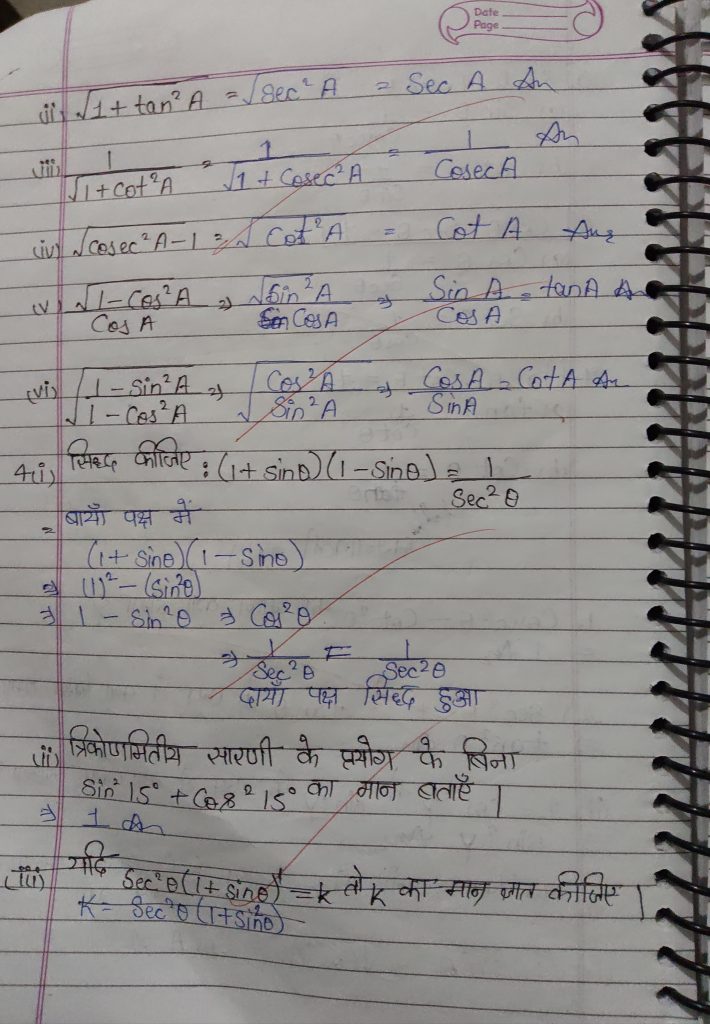 Date
Page
(ii) √1 + tan² A = √Sec² A = Sec A An
(iii) 1/√1 + Cot² A = 1/√1 + Cosec² A = 1/Cosec A An
(iv) √Cosec² A - 1 = √Cot² A = Cot A Ans
(v) √1 - Cos² A / Cos A ⇒ √Sin² A / Cos A ⇒ Sin A / Cos A = tan A An
(vi) √1 - Sin² A / 1 - Cos² A ⇒ √Cos² A / Sin² A ⇒ Cos A / Sin A = Cot A An
4(i) सिद्ध कीजिए : (1 + sinθ)(1 - Sinθ) = 1/Sec² θ
= बायाँ पक्ष में
(1 + Sinθ)(1 - Sinθ)
⇒ (1)² - (Sin²θ)
⇒ 1 - Sin² θ ⇒ Cos² θ
⇒ 1/Sec² θ = 1/Sec² θ
दायाँ पक्ष सिद्ध हुआ
(ii) त्रिकोणमितीय सारणी के प्रयोग के बिना
Sin² 15° + Cos² 15° का मान बताएँ |
⇒ 1 An
(iii) यदि Sec² θ (1 + sinθ) = K तो K का मान ज्ञात कीजिए |
K = Sec² θ (1 + Sin² θ)